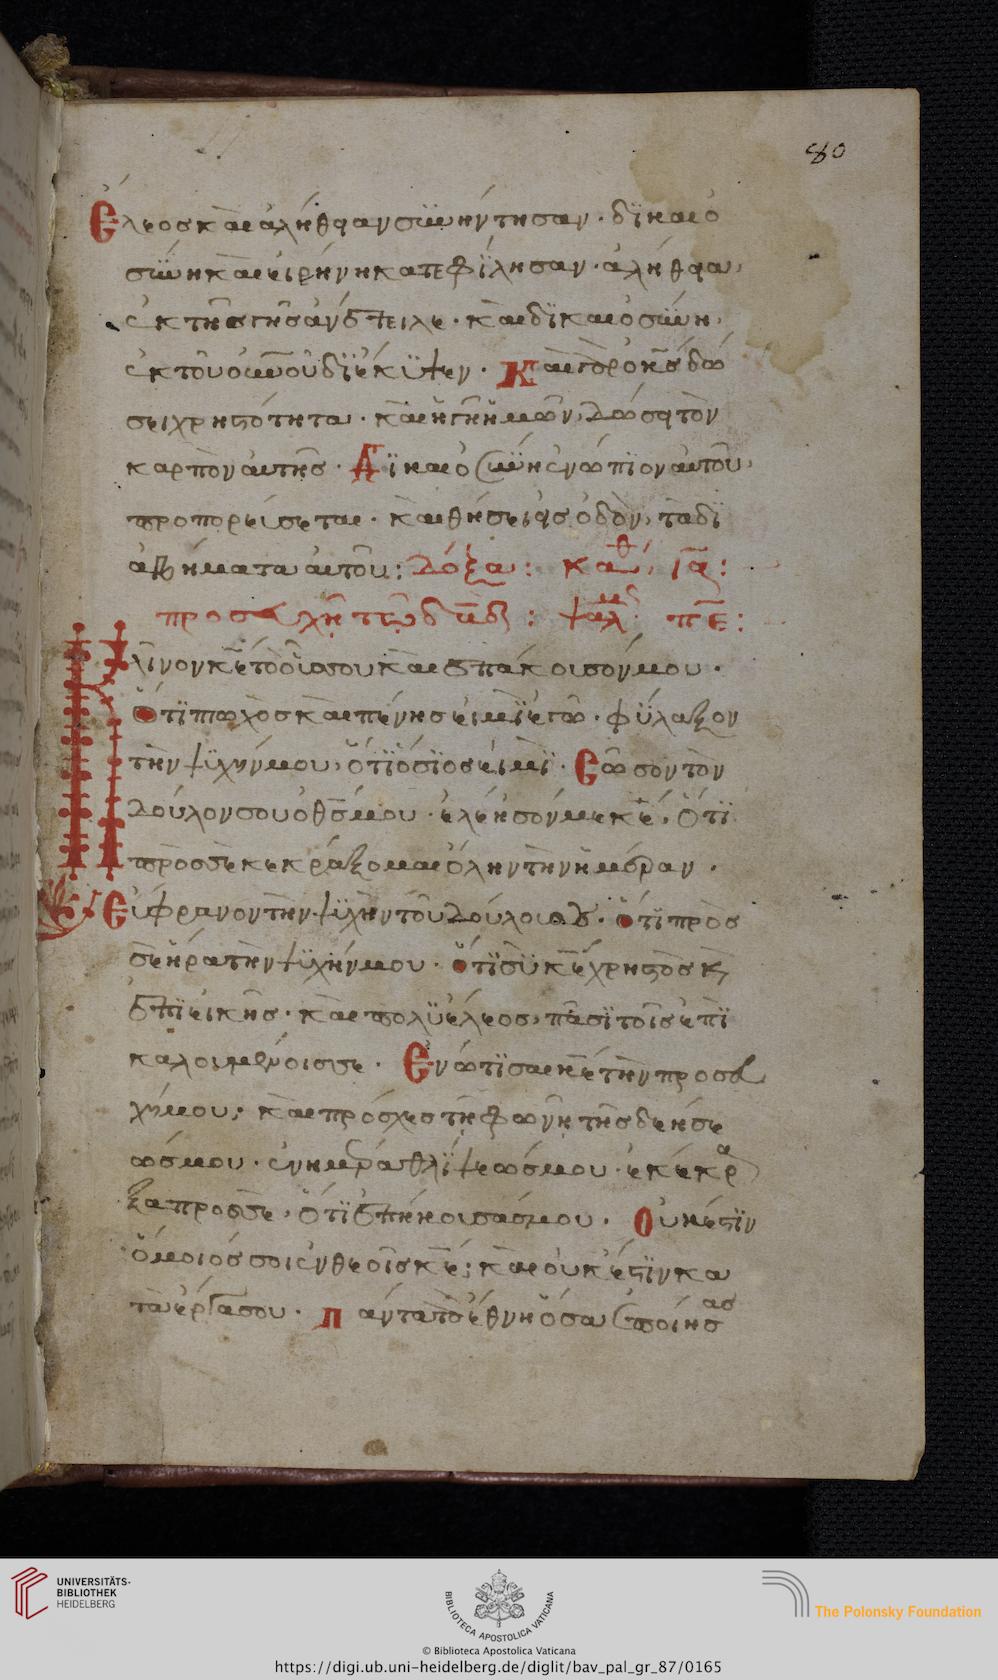 80
Ἔλεος καὶ ἀλήθεια συνήντησαν · δϊκαιο
σϋνη καὶ εἰρήνη κατεφίλησαν · ἀλήθεια
ἐκ τῆς γῆς ἀνέτειλε · καὶ δϊκαιοσϋνη
ἐκ τοῦ οὐνοῦ δϊέκϋψεν · Καὶ γὰρ ὁ κς δώ
σει χρηστότητα · καὶ ἡ γῆ ἡμῶν δώσει τὸν
καρπὸν αὐτῆς · Δϊκαιοσϋνη ἐνώπϊον αὐτοῦ
προπορεύσεται · καὶ θήσει εἰς ὁδὸν, τὰ δϊ
αβήματα αὐτοῦ : Δόξα : καθ ια :
προσευχὴ τῶ δαδ : ψαλμς πε :
Κλῖνον κε τὸ οὖς σου καὶ ἐπάκουσόν μου ·
Ὅτϊ πτωχὸς καὶ πένης εἰμϊ ἐγὼ · φϋλαξον
τὴν ψϋχήν μου, ὅτϊ ὅσϊος εἰμϊ · Σῶσον τὸν
δοῦλον σου ὁ θς μου · ἐλέησόν με κε, Ὅτϊ
πρὸς σὲ κεκράξομαι ὅλην τὴν ἡμέραν ·
Εὔφρανον τὴν ψϋχὴν τοῦ δούλου σου · ὅτϊ πρὸς
σὲ ἦρα τὴν ψϋχήν μου · ὅτϊ σϋ κε χρηστὸς κ
ἐπϊεικὴς · καὶ πολϋέλεος, πᾶσϊ τοῖς ἐπϊ
καλουμένοις σε · Ἐνώτϊσαι κε τὴν προσευ
χήν μου, καὶ πρόσχες τῆ φωνῆ τῆς δεήσε
ώς μου · ἐν ἡμέρα θλίψεώς μου · ἐκέκρα
ξα προς σε, ὅτϊ ἐπήκουσάς μου · Οὐκ ἔστϊν
ὅμοιός σοι ἐν θεοῖς κε ; καὶ οὐκ ἔστϊν κα
τὰ ἔργα σου · Πάντα τὰ ἔθνη ὅσα ἐποίησας
UNIVERSITÄTS-
BIBLIOTHEK
HEIDELBERG
BIBLIOTECA APOSTOLICA VATICANA
The Polonsky Foundation
© Biblioteca Apostolica Vaticana
https://digi.ub.uni-heidelberg.de/diglit/bav_pal_gr_87/0165